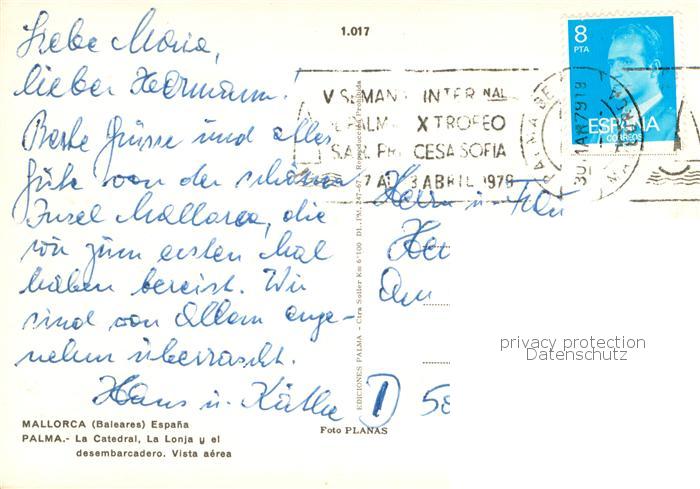 1.017
Liebe Maria,
lieber Hermann!
Beste Grüsse und alles
Gute von der schönen
Insel Mallorca, die
wir zum ersten Mal
haben bereist. Wir
sind von Allem ange-
nehm überrascht.
Hans u. Käthe
MALLORCA (Baleares) España
PALMA.- La Catedral, La Lonja y el
desembarcadero. Vista aérea
Foto PLANAS
EDICIONES PALMA - Ctra Soller Km 6'100 DL. PM. 247-67. Reproducción Prohibida
8
PTA
ESPAÑA
CORREOS
V SEMAN INTERNAL
PALMA X TROFEO
S.A.R. PRI CESA SOFIA
7 AL 3 ABRIL 1979
Herrn u. Frau
Her
Am
D 58
privacy protection
Datenschutz